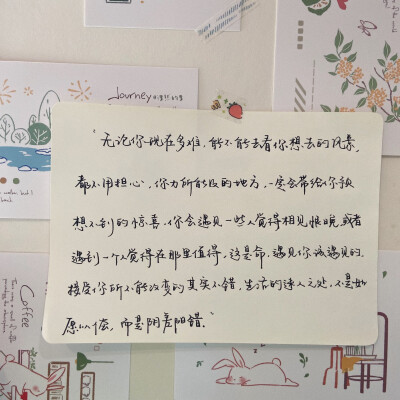 "无论你现在多难,能不能去看你想去的风景,
都不用担心,你力所能及的地方,一定会带给你预
想不到的惊喜,你会遇见一些人觉得相见恨晚,或者
遇到一个人觉得在那里值得,这是命,遇见你该遇见的,
接受你所不能改变的其实不错,生活的迷人之处,不是如
愿以偿,而是阴差阳错。"
Journey
Coffee